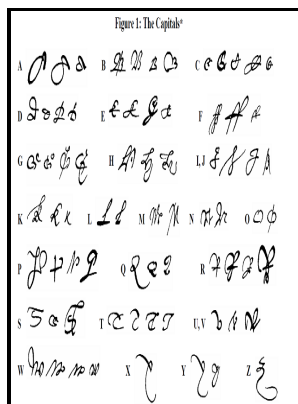 Figure 1: The Capitals*
A B C
D E F
G H I,J
K L M N O
P Q R
S T U,V
W X Y Z